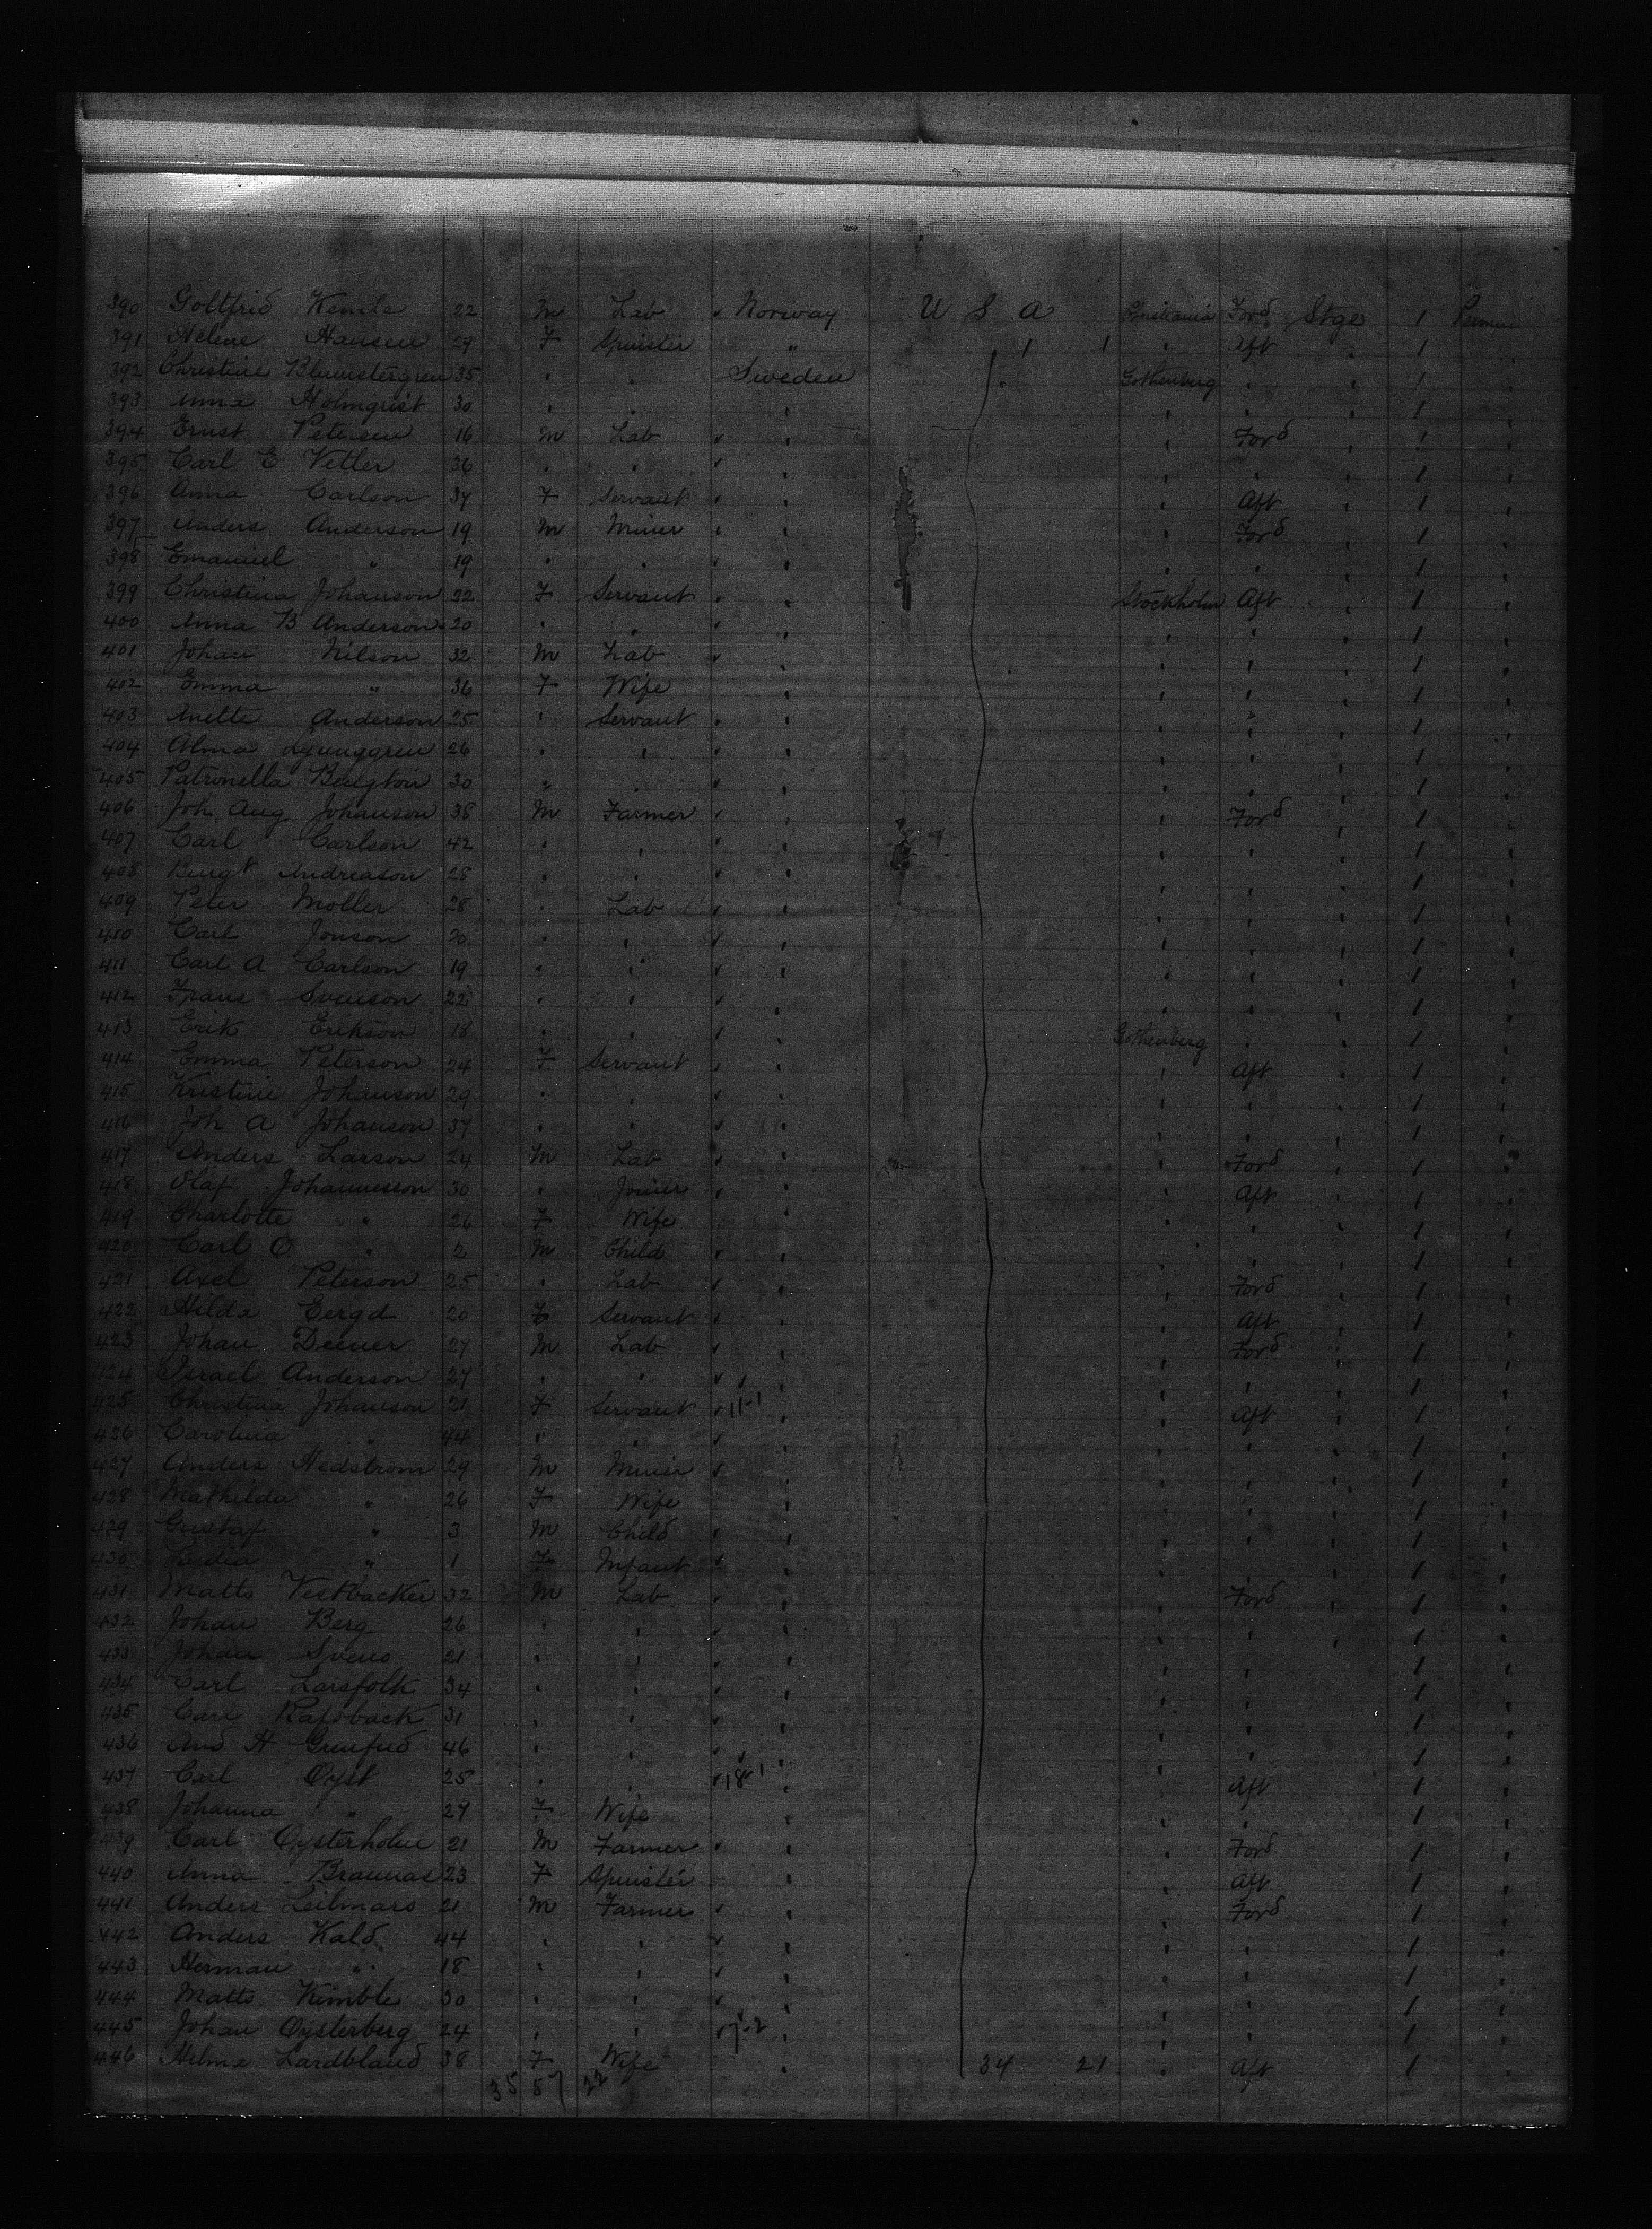 390 Goltfrid Kemle 22 M Lab Norway U S A Christiania Ford Stge 1
391 Helene Hansen 29 F Spinster " 1 1 " Aft " 1 "
392 Christine Blumstergren 35 " " Sweden Gothenberg " " 1 "
393 Anna Holmqrist 30 " " " " " " 1 "
394 Ernst Petersen 16 M Lab " " Ford " 1 "
395 Carl E Vetler 36 " " " " " " 1 "
396 Anna Carlson 34 F Servant " " Aft " 1 "
397 Anders Anderson 19 M Miner " " Ford " 1 "
398 Emanuel " 19 " " " " " " 1 "
399 Christina Johanson 32 F Servant " Stockholm Aft " 1 "
400 Anna B Anderson 20 " " " " " " 1 "
401 Johan Nilson 32 M Lab " " " " 1 "
402 Emma " 36 F Wife " " " " 1 "
403 Anette Anderson 25 " Servant " " " " 1 "
404 Alma Ljunggren 26 " " " " " " 1 "
405 Patronella Bengton 30 " " " " " " 1 "
406 Joh Aug Johanson 38 M Farmer " " Ford " 1 "
407 Carl Carlson 42 " " " " " " 1 "
408 Bengt Andreason 28 " " " " " " 1 "
409 Peter Moller 28 " Lab " " " " 1 "
410 Carl Jonson 20 " " " " " " 1 "
411 Carl A Carlson 19 " " " " " " 1 "
412 Frans Svenson 22 " " " " " " 1 "
413 Erik Erikson 18 " " " Gothenberg " " 1 "
414 Emma Peterson 24 F Servant " " Aft " 1 "
415 Kristine Johanson 29 " " " " " " 1 "
416 Joh A Johanson 37 " " " " " " 1 "
417 Anders Larson 24 M Lab " " Ford " 1 "
418 Olaf Johanneson 30 " Joiner " " Aft " 1 "
419 Charlotte " 26 F Wife " " " " 1 "
420 Carl O " 2 M Child " " " " 1 "
421 Axel Peterson 25 " Lab " " Ford " 1 "
422 Hilda Eergd 20 F Servant " " Aft " 1 "
423 Johan Deener 27 M Lab " " Ford " 1 "
424 Israel Anderson 27 " " " " " " 1 "
425 Christina Johanson 21 F Servant 11-1 " " Aft " 1 "
426 Carolina " 44 " " " " " " 1 "
427 Anders Hedstrom 29 M Miner " " " " 1 "
428 Mathilda " 26 F Wife " " " " 1 "
429 Gustaf " 3 M Child " " " " 1 "
430 " 1 F Infant " " " " 1 "
431 Matts Vestbacker 32 M Lab " " Ford " 1 "
432 Johan Berg 26 " " " " " " 1 "
433 Johan Svens 21 " " " " " " 1 "
434 Carl Larsfolk 34 " " " " " " 1 "
435 Carl Rafsback 31 " " " " " " 1 "
436 And H 46 " " " " " " 1 "
437 Carl Oyst 25 " " 18-1 " " Aft " 1 "
438 Johanna " 27 F Wife " " " " 1 "
439 Carl Oysterholm 21 M Farmer " " Ford " 1 "
440 Anna Braunas 23 F Spinster " " Aft " 1 "
441 Anders Leilmars 21 M Farmer " " Ford " 1 "
442 Anders Kald 44 " " " " " " 1 "
443 Herman " 18 " " " " " " 1 "
444 Matts Kimble 30 " " " " " " 1 "
445 Johan Oysterberg 24 " " 7-2 " " " " 1 "
446 Helma Lardbland 38 F Wife " 34 21 " Aft 1 "
35 57 22